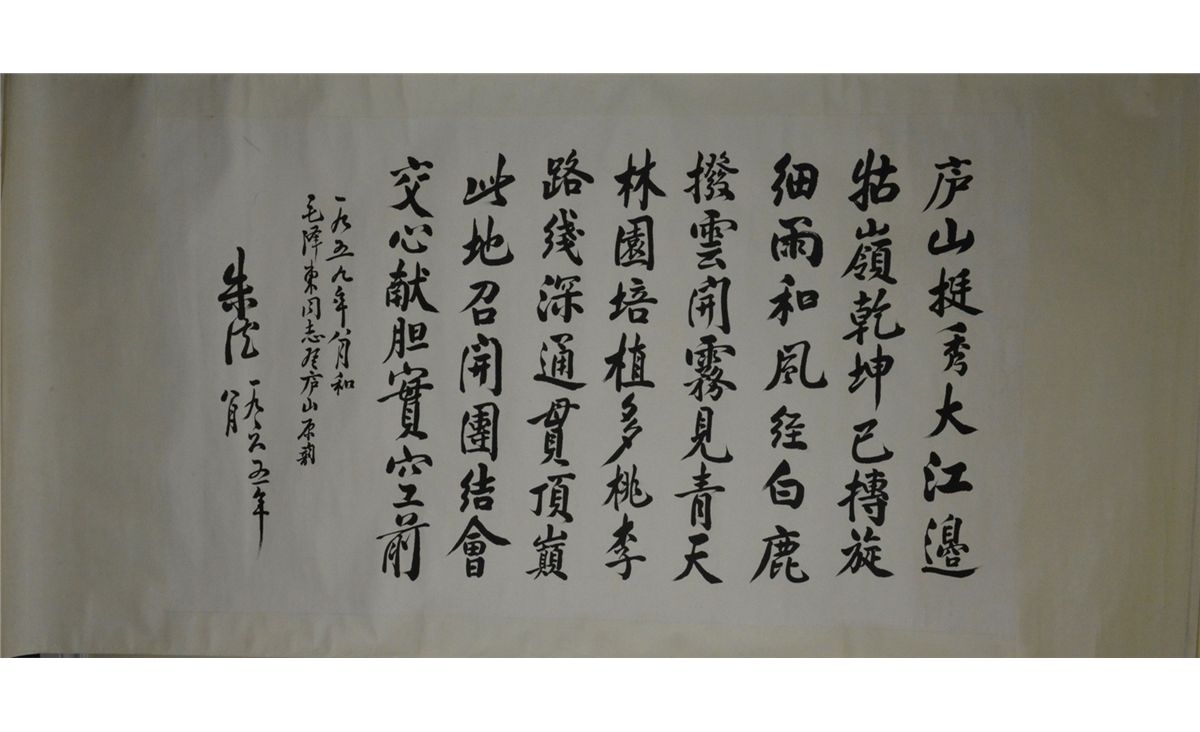 庐山挺秀大江邊
牯嶺乾坤已摶旋
细雨和风经白鹿
撥雲開霧見青天
林園培植多桃李
路线深通贯頂巔
此地召開團结會
交心献胆實空前
一九五九年八月和
毛泽东同志登庐山原韵
朱德
一九六五年
八月